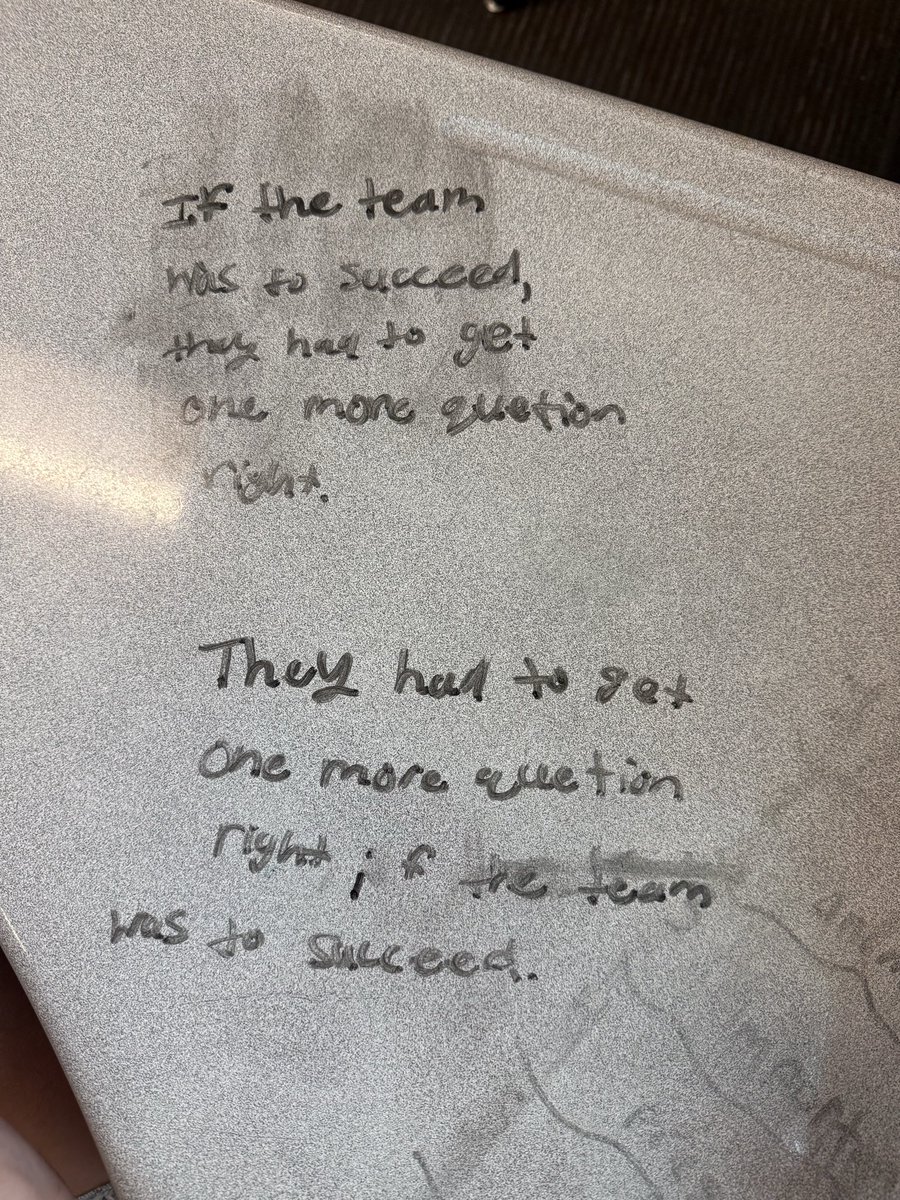 If the team
was to succeed,
they had to get
one more quetion
right.
They had to get
one more quetion
right if the team
was to succeed.